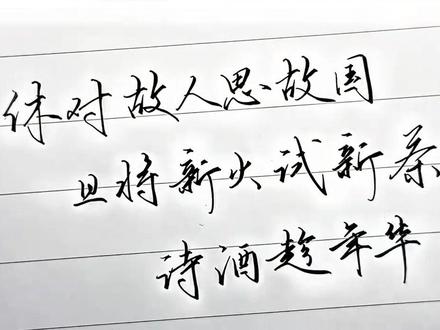 休对故人思故国
且将新火试新茶
诗酒趁年华